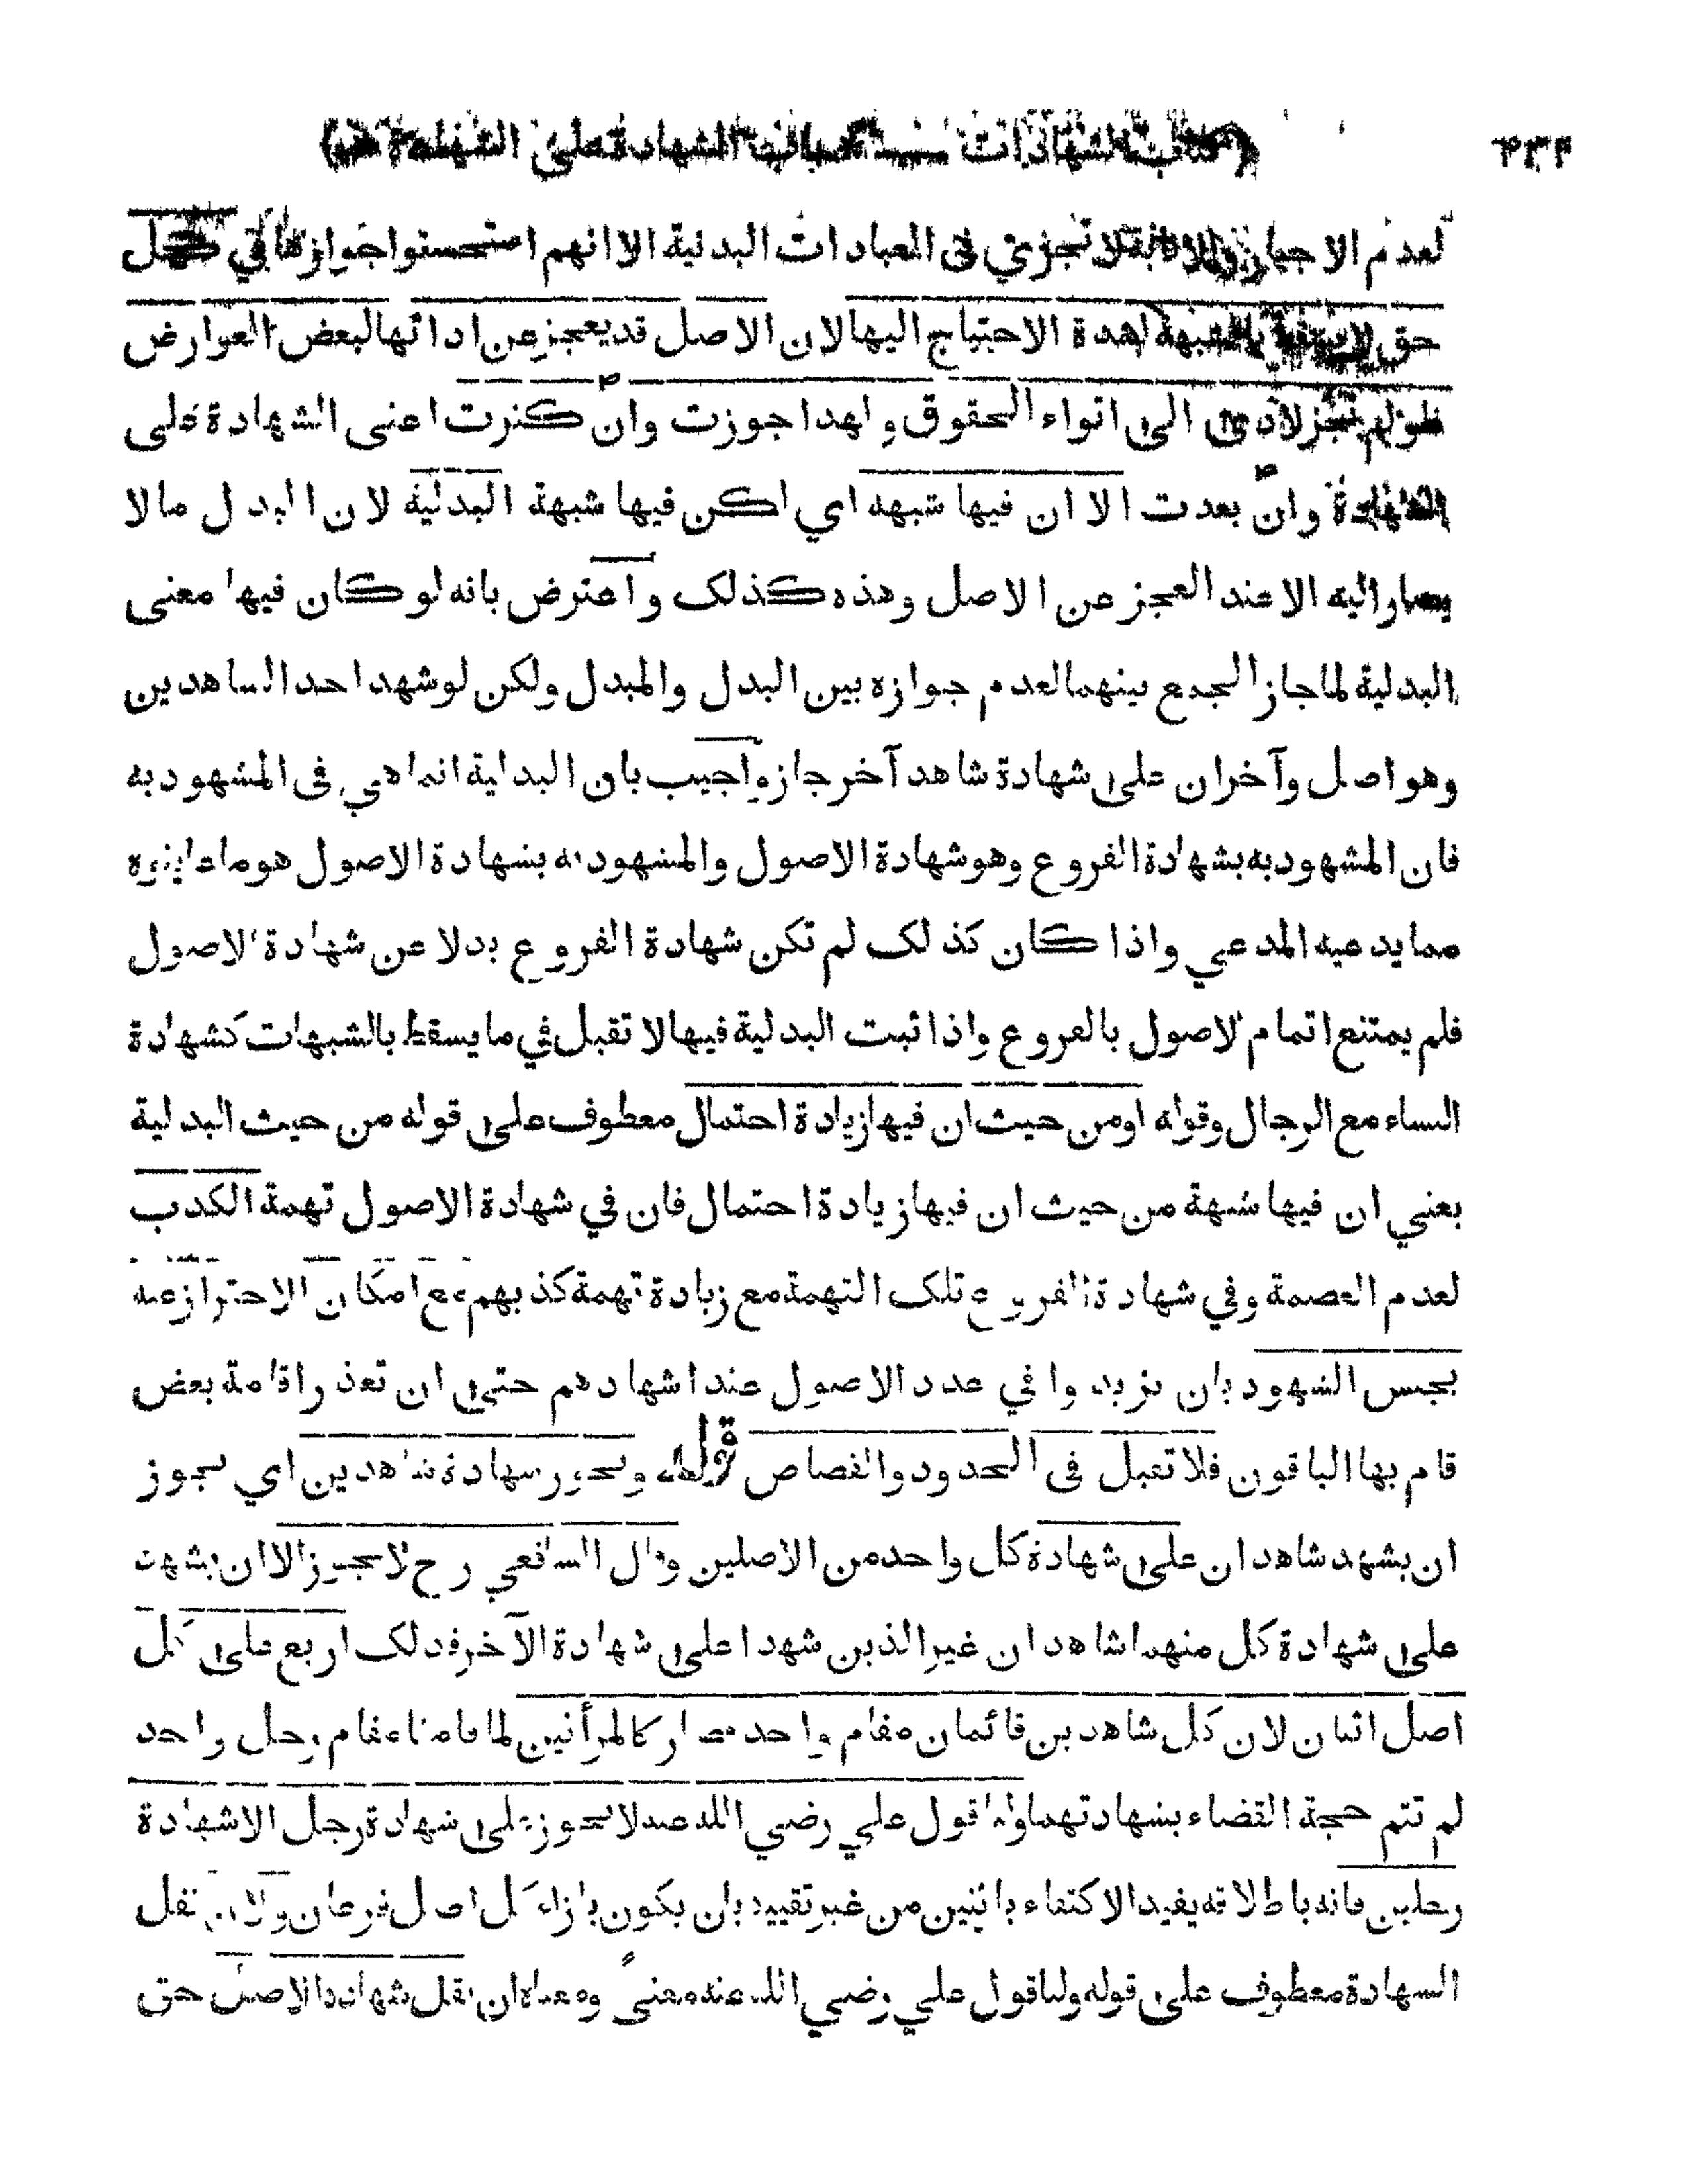 (كتاب الشهادات — باب الشهادة على الشهادة)
لعدم الاجبار والانابة لا تجزي فى العبادات البدنية الا انهم استحسنوا جوازها في كل
حق لا يسقط بالشبهة لشدة الاحتياج اليها لان الاصل قد يعجز عن ادائها لبعض العوارض
فلو لم تجز لادى الى اتواء الحقوق ولهذا جوزت وان كثرت اعنى الشهادة على
الشهادة وان بعدت الا ان فيها شبهة اي لكن فيها شبهة البدلية لان البدل ما لا
يصار اليه الا عند العجز عن الاصل وهذه كذلك واعترض بانه لو كان فيها معنى
البدلية لما جاز الجمع بينهما لعدم جوازه بين البدل والمبدل ولكن لو شهد احد الشاهدين
وهو اصل وآخران على شهادة شاهد آخر جاز واجيب بان البدلية انما هي فى المشهود به
فان المشهود به بشهادة الفروع وهو شهادة الاصول والمشهود به بشهادة الاصول هو ما عاينوه
مما يدعيه المدعي واذا كان كذلك لم تكن شهادة الفروع بدلا عن شهادة الاصول
فلم يمتنع اتمام الاصول بالفروع واذا ثبت البدلية فيها لا تقبل في ما يسقط بالشبهات كشهادة
النساء مع الرجال وقوله او من حيث ان فيها زيادة احتمال معطوف على قوله من حيث البدلية
يعني ان فيها شبهة من حيث ان فيها زيادة احتمال فان في شهادة الاصول تهمة الكذب
لعدم العصمة وفي شهادة الفروع تلك التهمة مع زيادة تهمة كذبهم مع امكان الاحتراز عنه
بجنس الشهود بان يزيدوا في عدد الاصول عند اشهادهم حتى ان تعذر اقامة بعض
قام بها الباقون فلا تقبل فى الحدود والقصاص قوله ويجوز شهادة شاهدين اي يجوز
ان يشهد شاهدان على شهادة كل واحد من الاصلين وقال الشافعي رح لا يجوز الا ان يشهد
على شهادة كل منهما شاهدان غير الذين شهدا على شهادة الآخر فذلك اربع على كل
اصل اثنان لان كل شاهدين قائمان مقام واحد فصار كالمرأتين لما قامتا مقام رجل واحد
لم تتم حجة القضاء بشهادتهما ولنا قول علي رضي الله عنه لا يجوز على شهادة رجل الا شهادة
رجلين فانه باطلاقه يفيد الاكتفاء باثنين من غير تقييد بان يكون بازاء كل اصل فرعان ولان نقل
الشهادة معطوف على قوله ولنا قول علي رضي الله عنه معنىً ومعناه ان نقل شهادة الاصل حتى